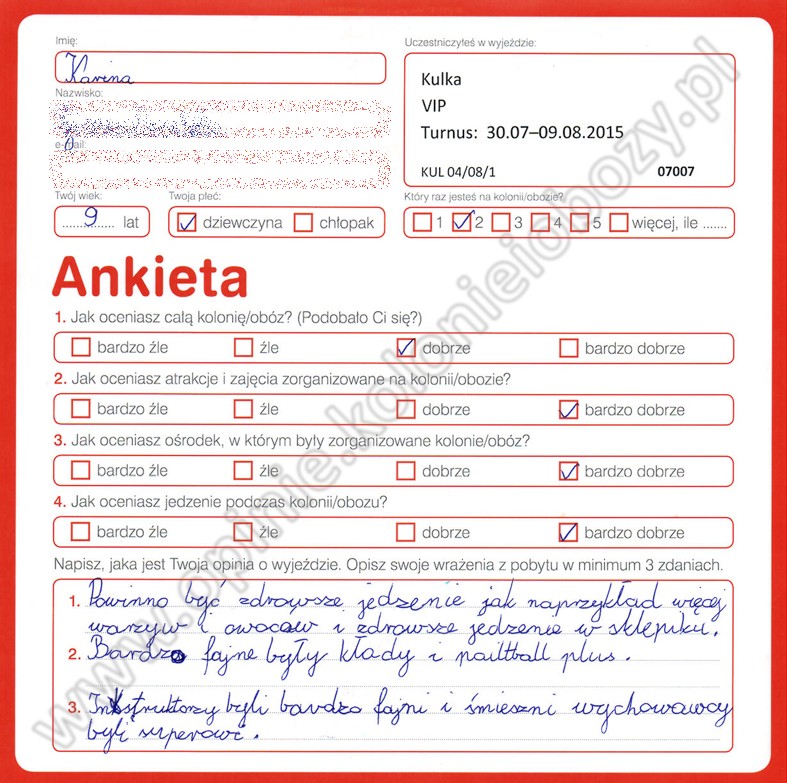 Imię:
Karina
Uczestniczyłeś w wyjeździe:
Kulka
VIP
Turnus: 30.07–09.08.2015
KUL 04/08/1 07007
Nazwisko:
e-mail:
Twój wiek: Twoja płeć: Który raz jesteś na kolonii/obozie?
9 lat dziewczyna chłopak 1 2 3 4 5 więcej, ile .......
Ankieta
1. Jak oceniasz całą kolonię/obóz? (Podobało Ci się?)
bardzo źle źle dobrze bardzo dobrze
2. Jak oceniasz atrakcje i zajęcia zorganizowane na kolonii/obozie?
bardzo źle źle dobrze bardzo dobrze
3. Jak oceniasz ośrodek, w którym były zorganizowane kolonie/obóz?
bardzo źle źle dobrze bardzo dobrze
4. Jak oceniasz jedzenie podczas kolonii/obozu?
bardzo źle źle dobrze bardzo dobrze
Napisz, jaka jest Twoja opinia o wyjeździe. Opisz swoje wrażenia z pobytu w minimum 3 zdaniach.
1. Powinno być zdrowsze jedzenie jak naprzykład więcej
warzyw i owocow i zdrowsze jedzenie w sklepiku.
2. Bardzo fajne były kłady i paitball plus.
3. Instruktorzy byli bardzo fajni i śmieszni wychowawcy
byli superowi.
www.opinie.kolonieiobozy.pl